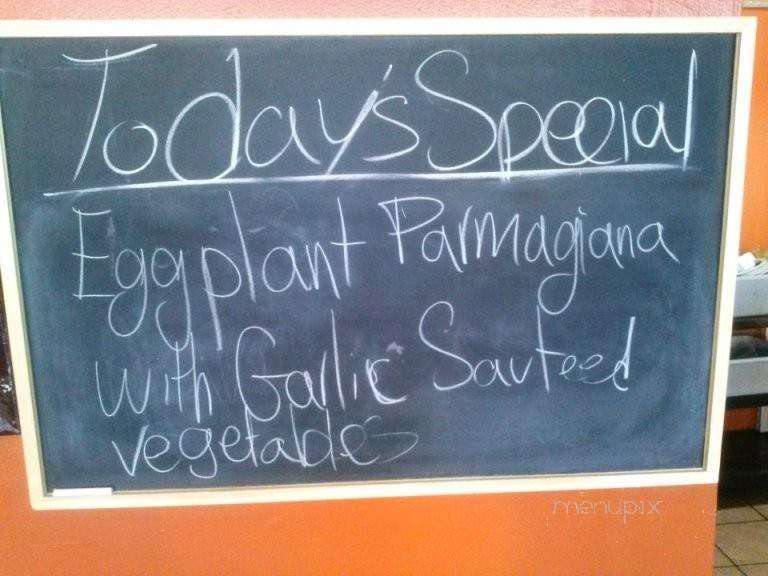 Today's Special
Eggplant Parmagiana
with Garlic Sauteed
vegetables
menupix